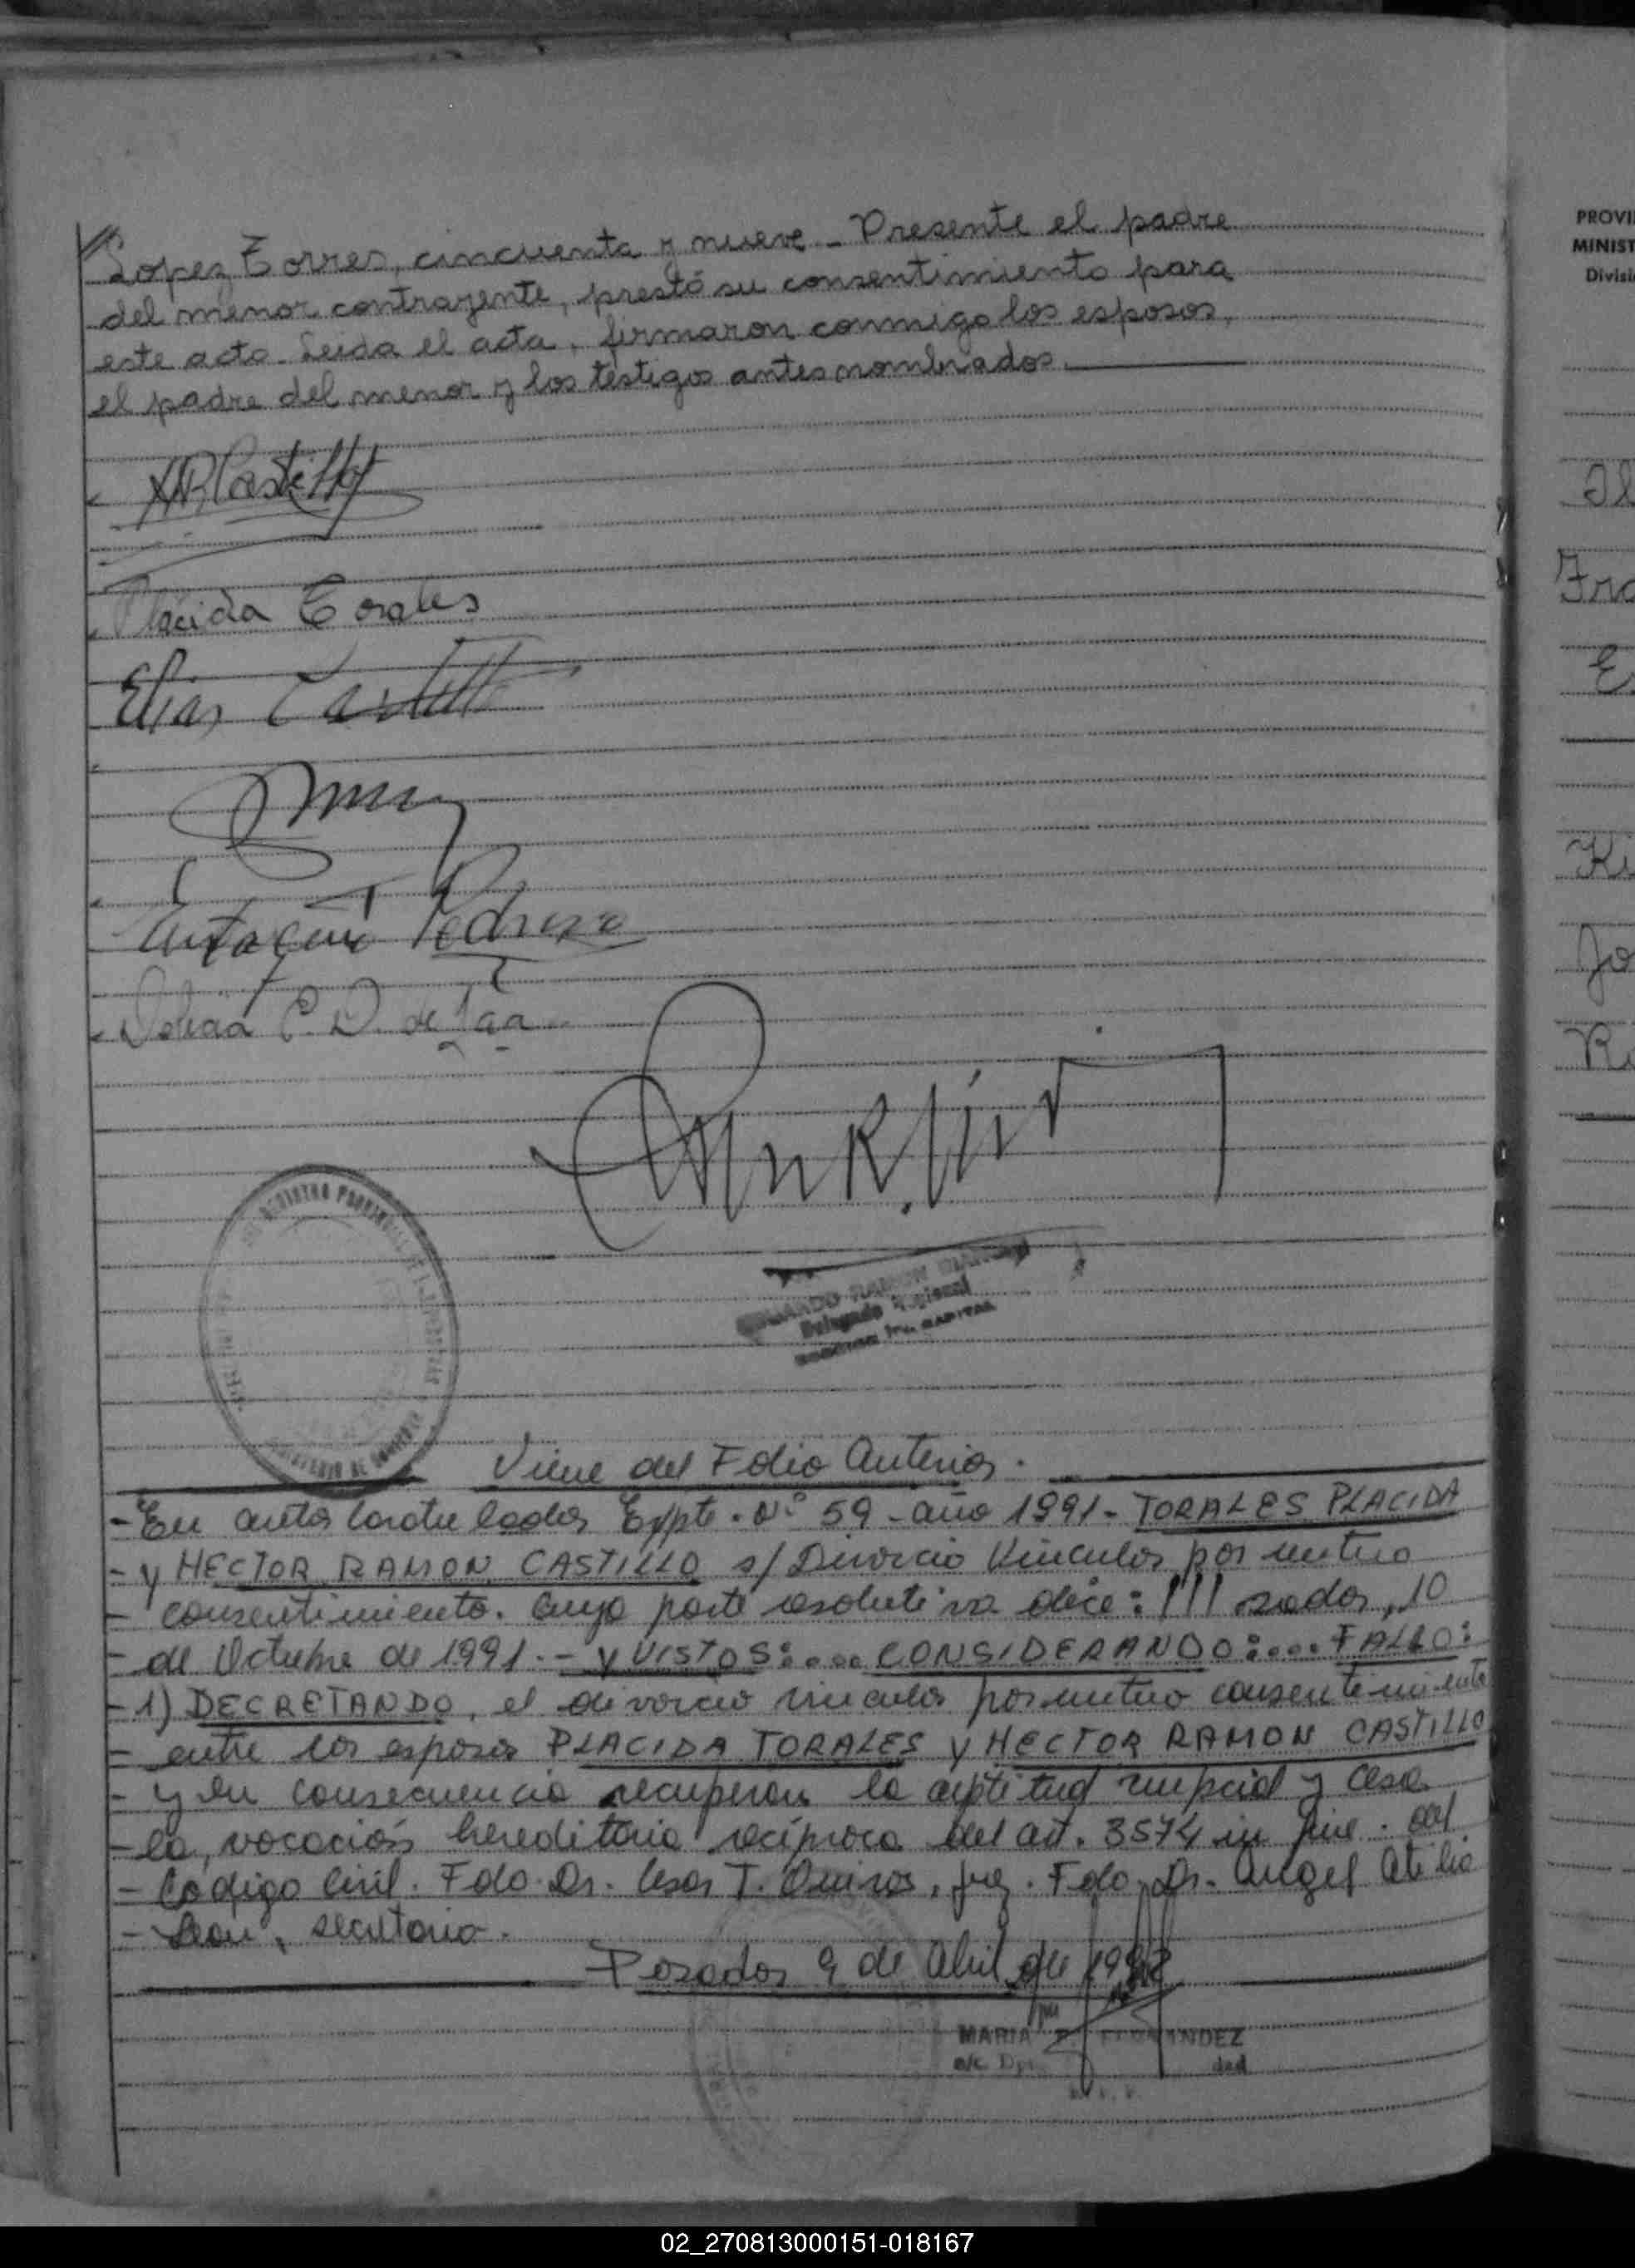 Lopez Torres, cincuenta y nueve - Presente el padre
del menor contrayente, prestó su consentimiento para
este acto. Leida el acta, firmaron conmigo los esposos,
el padre del menor y los testigos antes nombrados.
HRCastillo
Plácida Torales
Elias Castillo
Pedrozo
REGISTRO PROVINCIAL DE
RAMON
Delegado Regional
CAPITAL
Viene del Folio Anterior.
- En autos caratulados Expte. Nº 59 - año 1991 - TORALES PLACIDA
- y HECTOR RAMON CASTILLO s/ Divorcio Vincular por mutuo
- consentimiento. Cuya parte resolutiva dice: ///sadas, 10
- de Octubre de 1991.- - y VISTOS:.... CONSIDERANDO:.... FALLO:
- 1) DECRETANDO, el divorcio vincular por mutuo consentimiento
- entre los esposos PLACIDA TORALES y HECTOR RAMON CASTILLO
- y en consecuencia recuperan la aptitud nupcial y cesa
- la vocación hereditaria recíproca del art. 3574 in fine. del
- Código Civil. Fdo. Dr. Cesar T. Quiros, juez. Fdo. Dr. Angel Atilio
- Leon, secretario.
Posadas 9 de Abril de 1992
MARIA FERNANDEZ
a/c. Dpt
PROVI
MINIST
Divisi
Jo
02_270813000151-018167